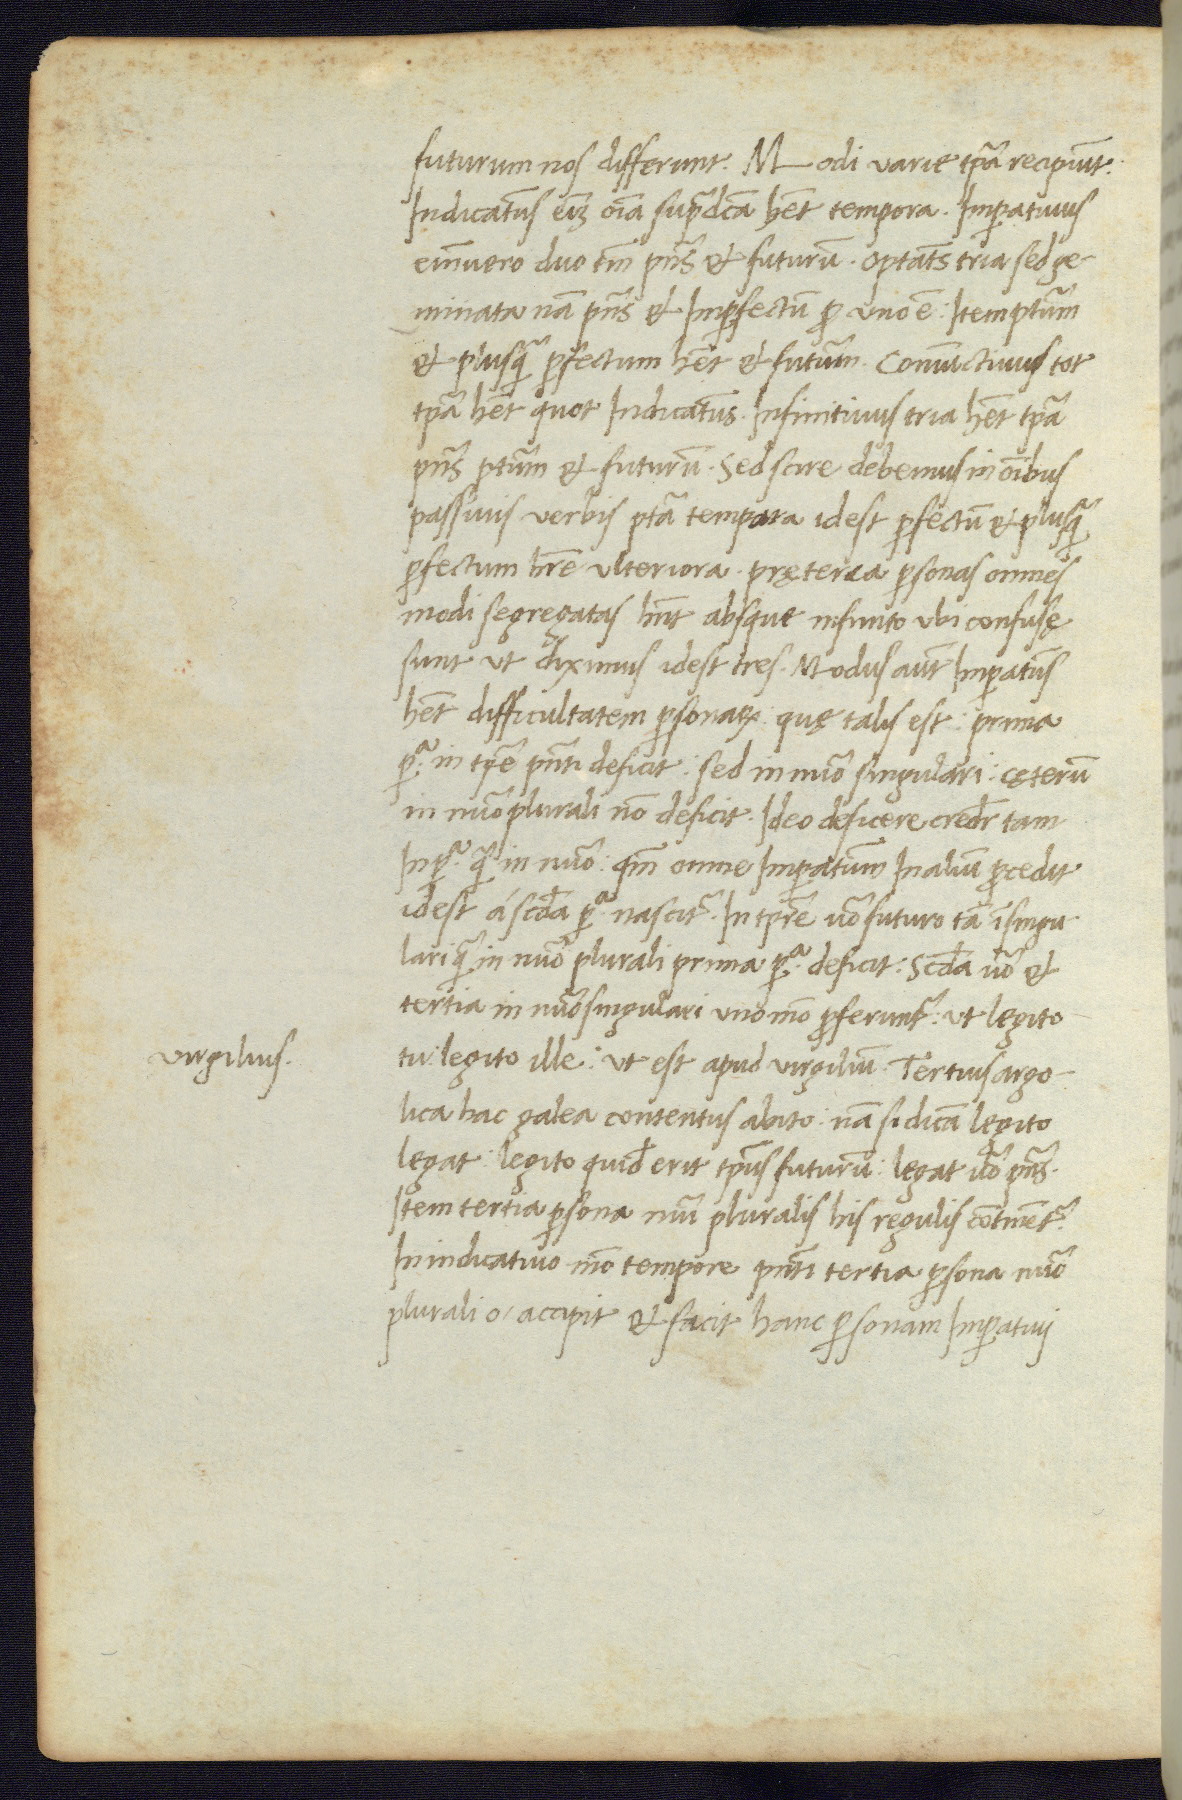 futurum nos differunt. Modi varie tp̃a recipiũt.
Indicatũs eiꝫ oĩa sup̃dcã hẽt tempora. Imꝑatiuus
enĩuero duo tm̃ pñs & futurũ. optatũs tria sed ge-
minata nã pñs & Imꝑfectũ ꝓ uno ẽ: Item ptũm
& plusq̃ ꝑfectum hẽt & futũm. Coniunctiuus tot
tp̃a hẽt quot Indicatũs. Infinitiuus tria hẽt tp̃a
pñs ptũm & futurũ. Sed scire debemus in oĩbus
passiuis verbis ptã tempora idest ꝑfectũ & plusq̃
ꝑfectum hr̃e ulteriora. pręterea ꝑsonas omnes
modi segregatas hñt absque infinito ubi confusę
sunt ut diximus idest tres. Modus aũt Imꝑatũs
hẽt difficultatem ꝑsonaꝝ: quę talis est: prima
ꝑ.ª in tp̃e pñti deficit: sed in nũo singulari: cęterũ
in nũo plurali nõ deficit. Ideo deficere credr̃ tam
In ꝑ.ª q̃ in nũo: qm̃ omne Imꝑatũm In aliũ ꝓcedit
idest á scda ꝑ.ª nascit̃. In tpr̃e ũo futuro tã ĩ singu
lari q̃ in nũo plurali prima ꝑ.ª deficit: Scda ũo &
tertia in nũo singulari uno mõ ꝓferunt̃: ut legito
tu: legito ille: ut est apud virgiliũ. Tertius argo-
lica hac galea contentus abito: nã si dicã legito
legat: legito quid erit tp̃us futurũ: legat ũo pñs.
Item tertia ꝑsona nũi pluralis his regulis cõtinet̃.
In indicatiuo mõ tempore pñti tertia ꝑsona nũo
plurali o/ accipit & facit hanc ꝑsonam Imꝑatiui
virgilius.